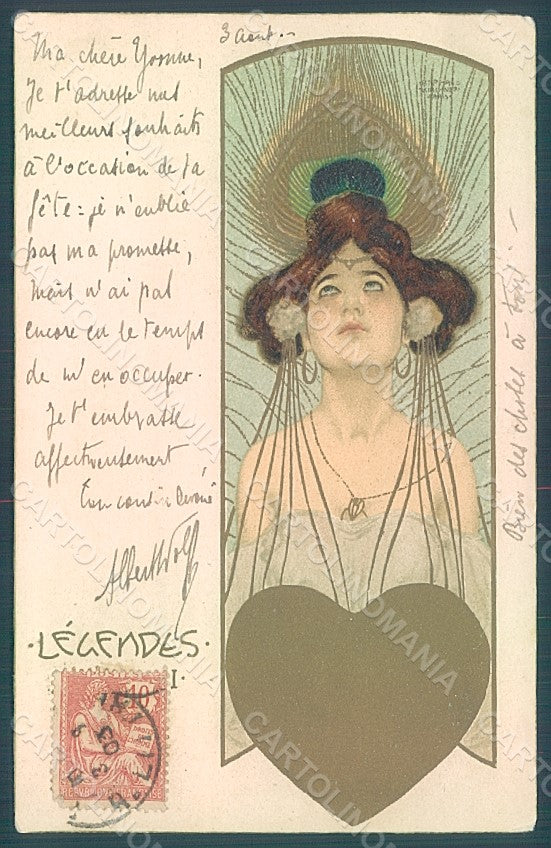 3 Août.-
Ma chère Yvonne,
Je t'adresse mes
meilleurs souhaits
à l'occasion de ta
fête : je n'oublie
pas ma promesse,
mais n'ai pas
encore eu le temps
de m'en occuper.
Je t'embrasse
affectueusement,
Ton cousin dévoué
Albert Wolff
Bien des choses à tous.-
RAPHAEL
KIRCHNER
PARIS
·LÉGENDES·
I·
10
REPUBLIQUE FRANÇAISE
CARTOLINOMANIA